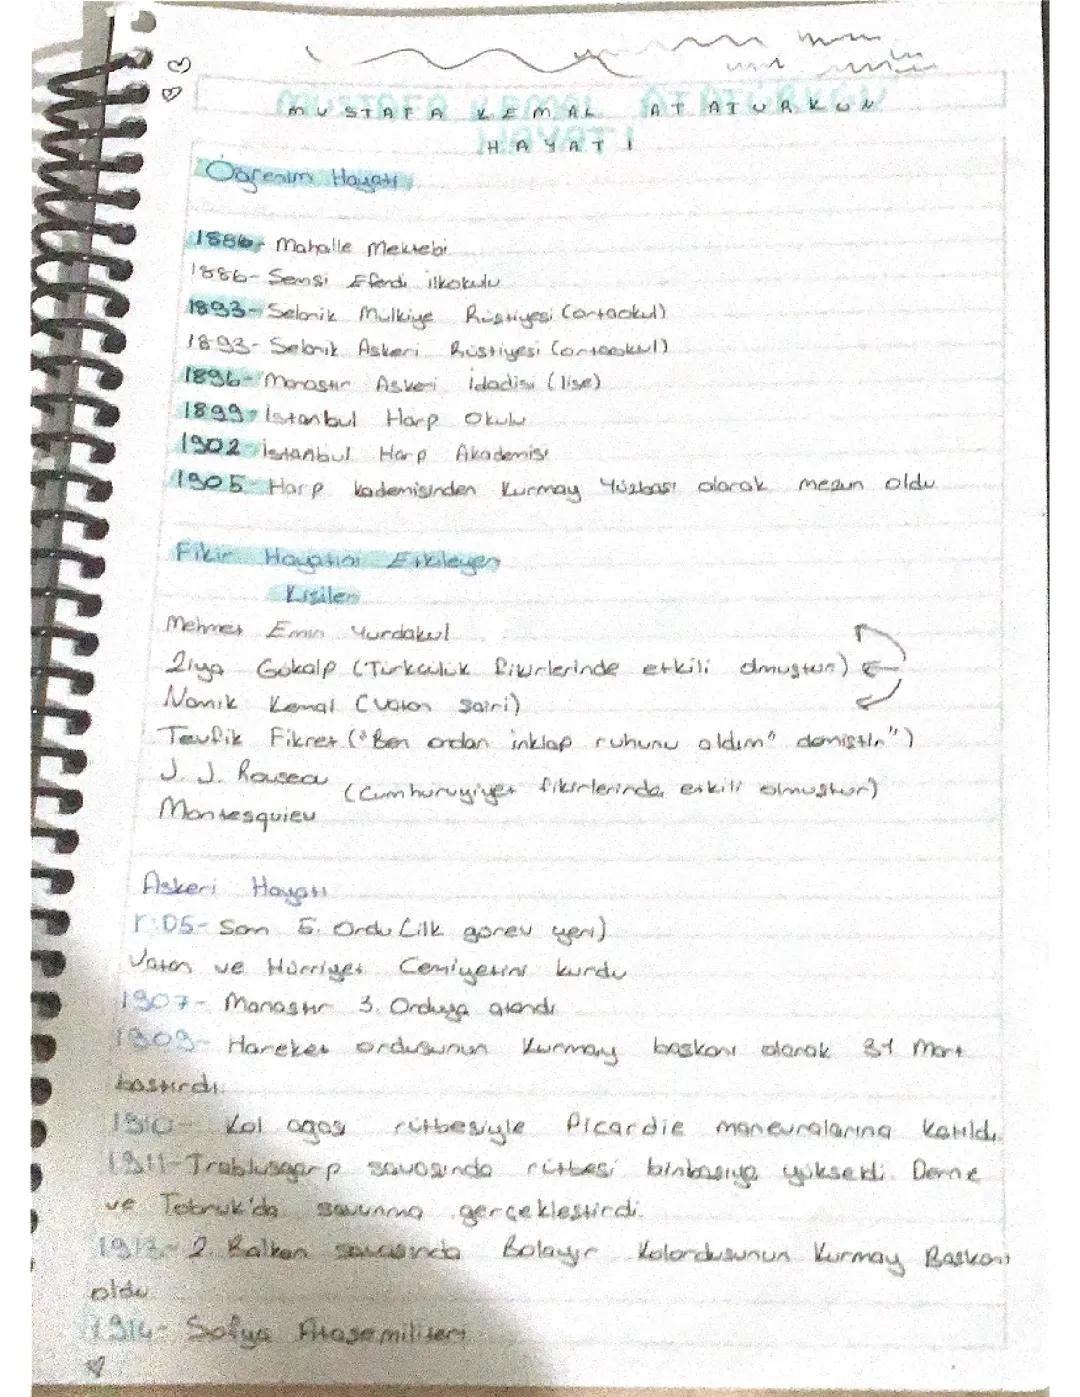 MUSTAFA KEMAL ATATÜRKÜN
HAYATI
Öğrenim Hayatı
1886- Mahalle Mektebi
1886- Şemsi Efendi ilkokulu
1893- Selanik Mülkiye Rüştiyesi (ortaokul)
1893- Selanik Askeri Rüştiyesi (ortaokul)
1896- Manastır Askeri İdadisi (lise)
1899- İstanbul Harp Okulu
1902- İstanbul Harp Akademisi
1905- Harp kademisinden Kurmay Yüzbaşı olarak mezun oldu
Fikir Hayatını Etkileyen
Kişiler
Mehmet Emin Yurdakul
Ziya Gökalp (Türkçülük fikirlerinde etkili olmuştur)
Namık Kemal (Vatan Şairi)
Tevfik Fikret ("Ben ondan inklap ruhunu aldım" demiştir")
J. J. Rouseau
(Cumhuruyiyet fikirlerinde etkili olmuştur)
Montesquieu
Askeri Hayatı
05- Şam 5. Ordu (ilk görev yeri)
Vatan ve Hürriyet Cemiyetini kurdu
1907- Manastır 3. Orduya atandı
1909- Hareket ordusunun Kurmay başkanı olarak 31 Mart
bastırdı.
1910- Kol ağası rütbesiyle Picardie manevralarına katıldı.
1911- Trablusgarp savaşında rütbesi binbaşıya yükseldi. Derne
ve Tobruk'da savunma gerçekleştirdi.
2. Balkan savaşında Bolayır Kolordusunun Kurmay Başkanı
oldu
1914- Sofya Ataşemiliteri